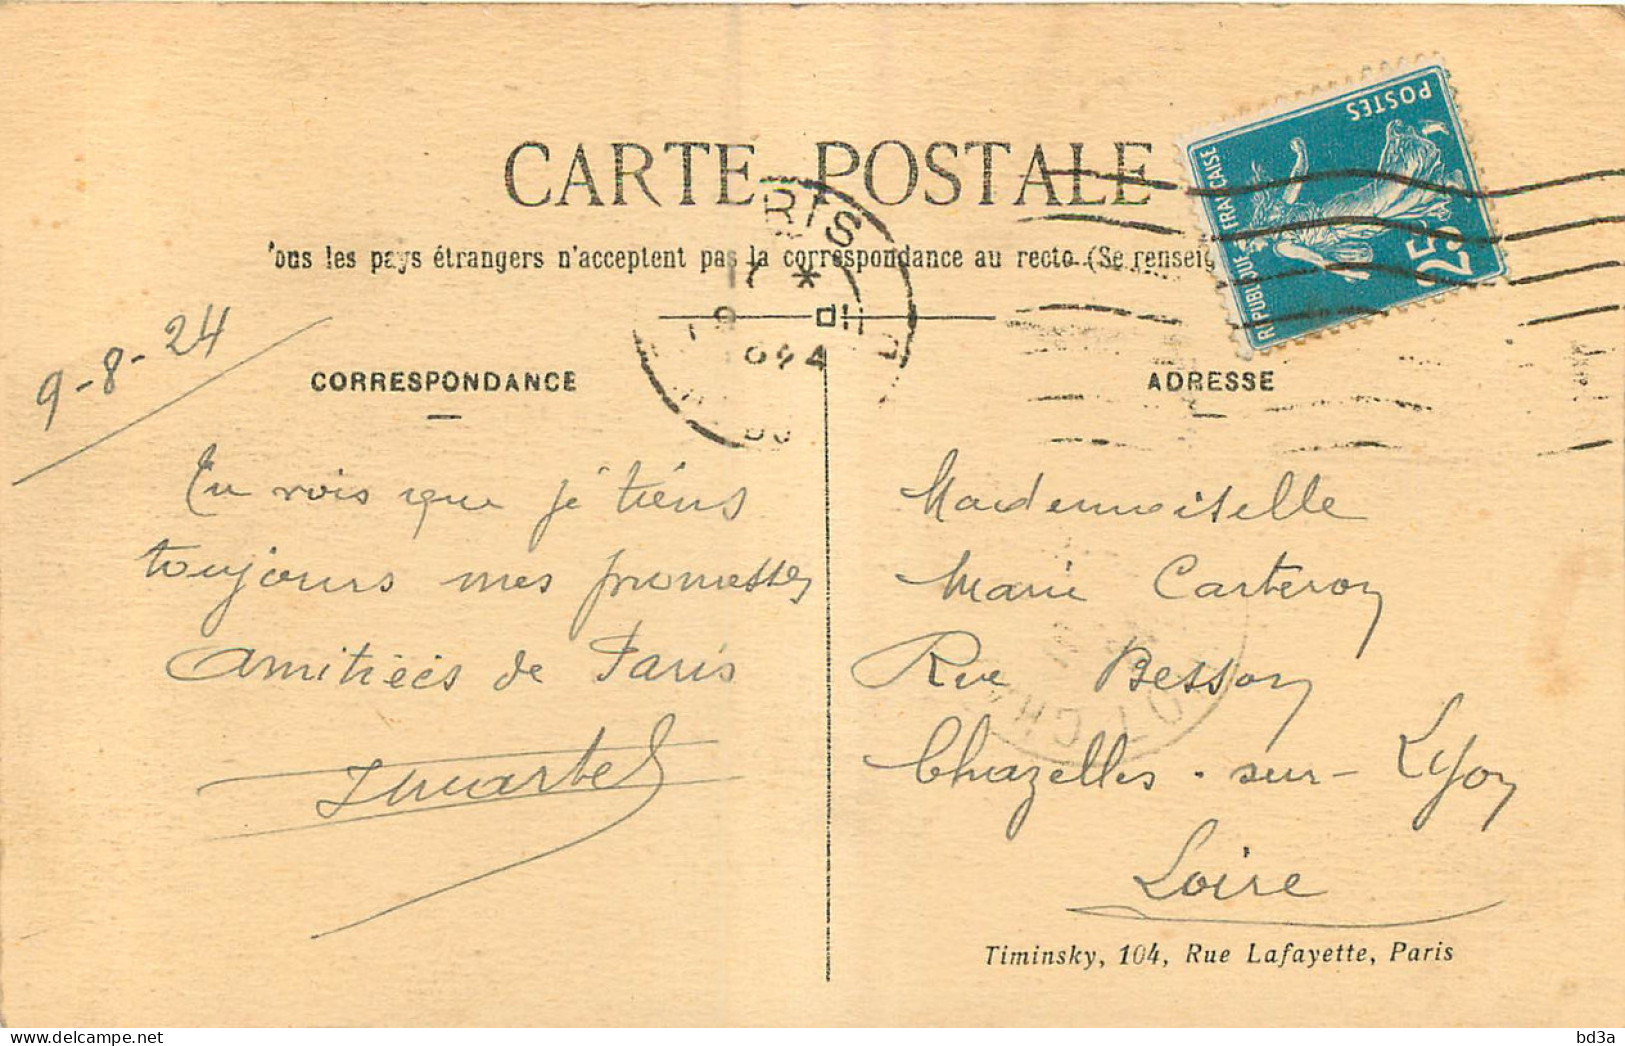 CARTE POSTALE
ous les pays étrangers n'acceptent pas la correspondance au recto (Se renseig
POSTES
REPUBLIQUE FRANÇAISE
25
RIS
*
9-8-24
CORRESPONDANCE
ADRESSE
Tu vois que je tiens
toujours mes promesses
Amitiées de Paris
Mademoiselle
Marie Carteron
Rue Besson
Chazelles-sur-Lyon
Loire
Timinsky, 104, Rue Lafayette, Paris
bd3a